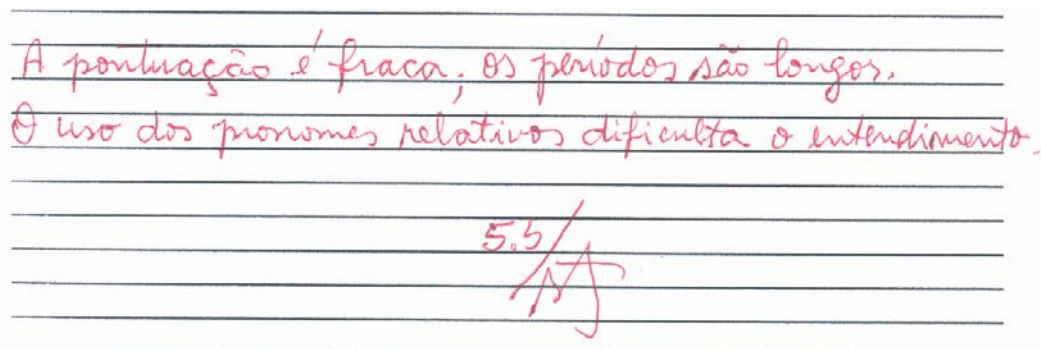 A pontuação é fraca; os períodos são longos.
O uso dos pronomes relativos dificulta o entendimento.
5.5/